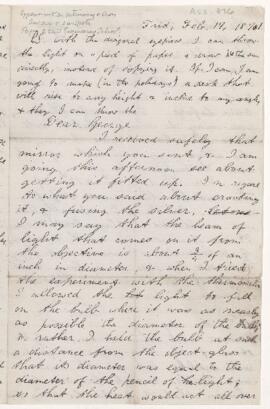 Frid, Feb. 14, 18
P.S. With the diagonal eyepiece I can throw
the light on a piece of paper, & draw
directly, instead of copying it. If I can, I am
going to make (in the holidays) a desk that
will rise to any height & incline to any angle,
& then I can throw the
Dear George
I received safely that
mirror which you sent, & I am
going this afternoon to see about
getting it fitted up. In regard
to what you said about
it, & fusing the silver,
I may say that the beam of
light that comes on it from
the objective is about ½ of an
inch in diameter, & when I tried
the experiment with the thermometer
I allowed the light to fall
on the bulb where it was as nearly
as possible the diameter of the bulb,
or rather, I held the bulb at such
a distance from the object-glass
that its diameter was equal to the
diameter of the pencil of light;
so that the heat would act all over